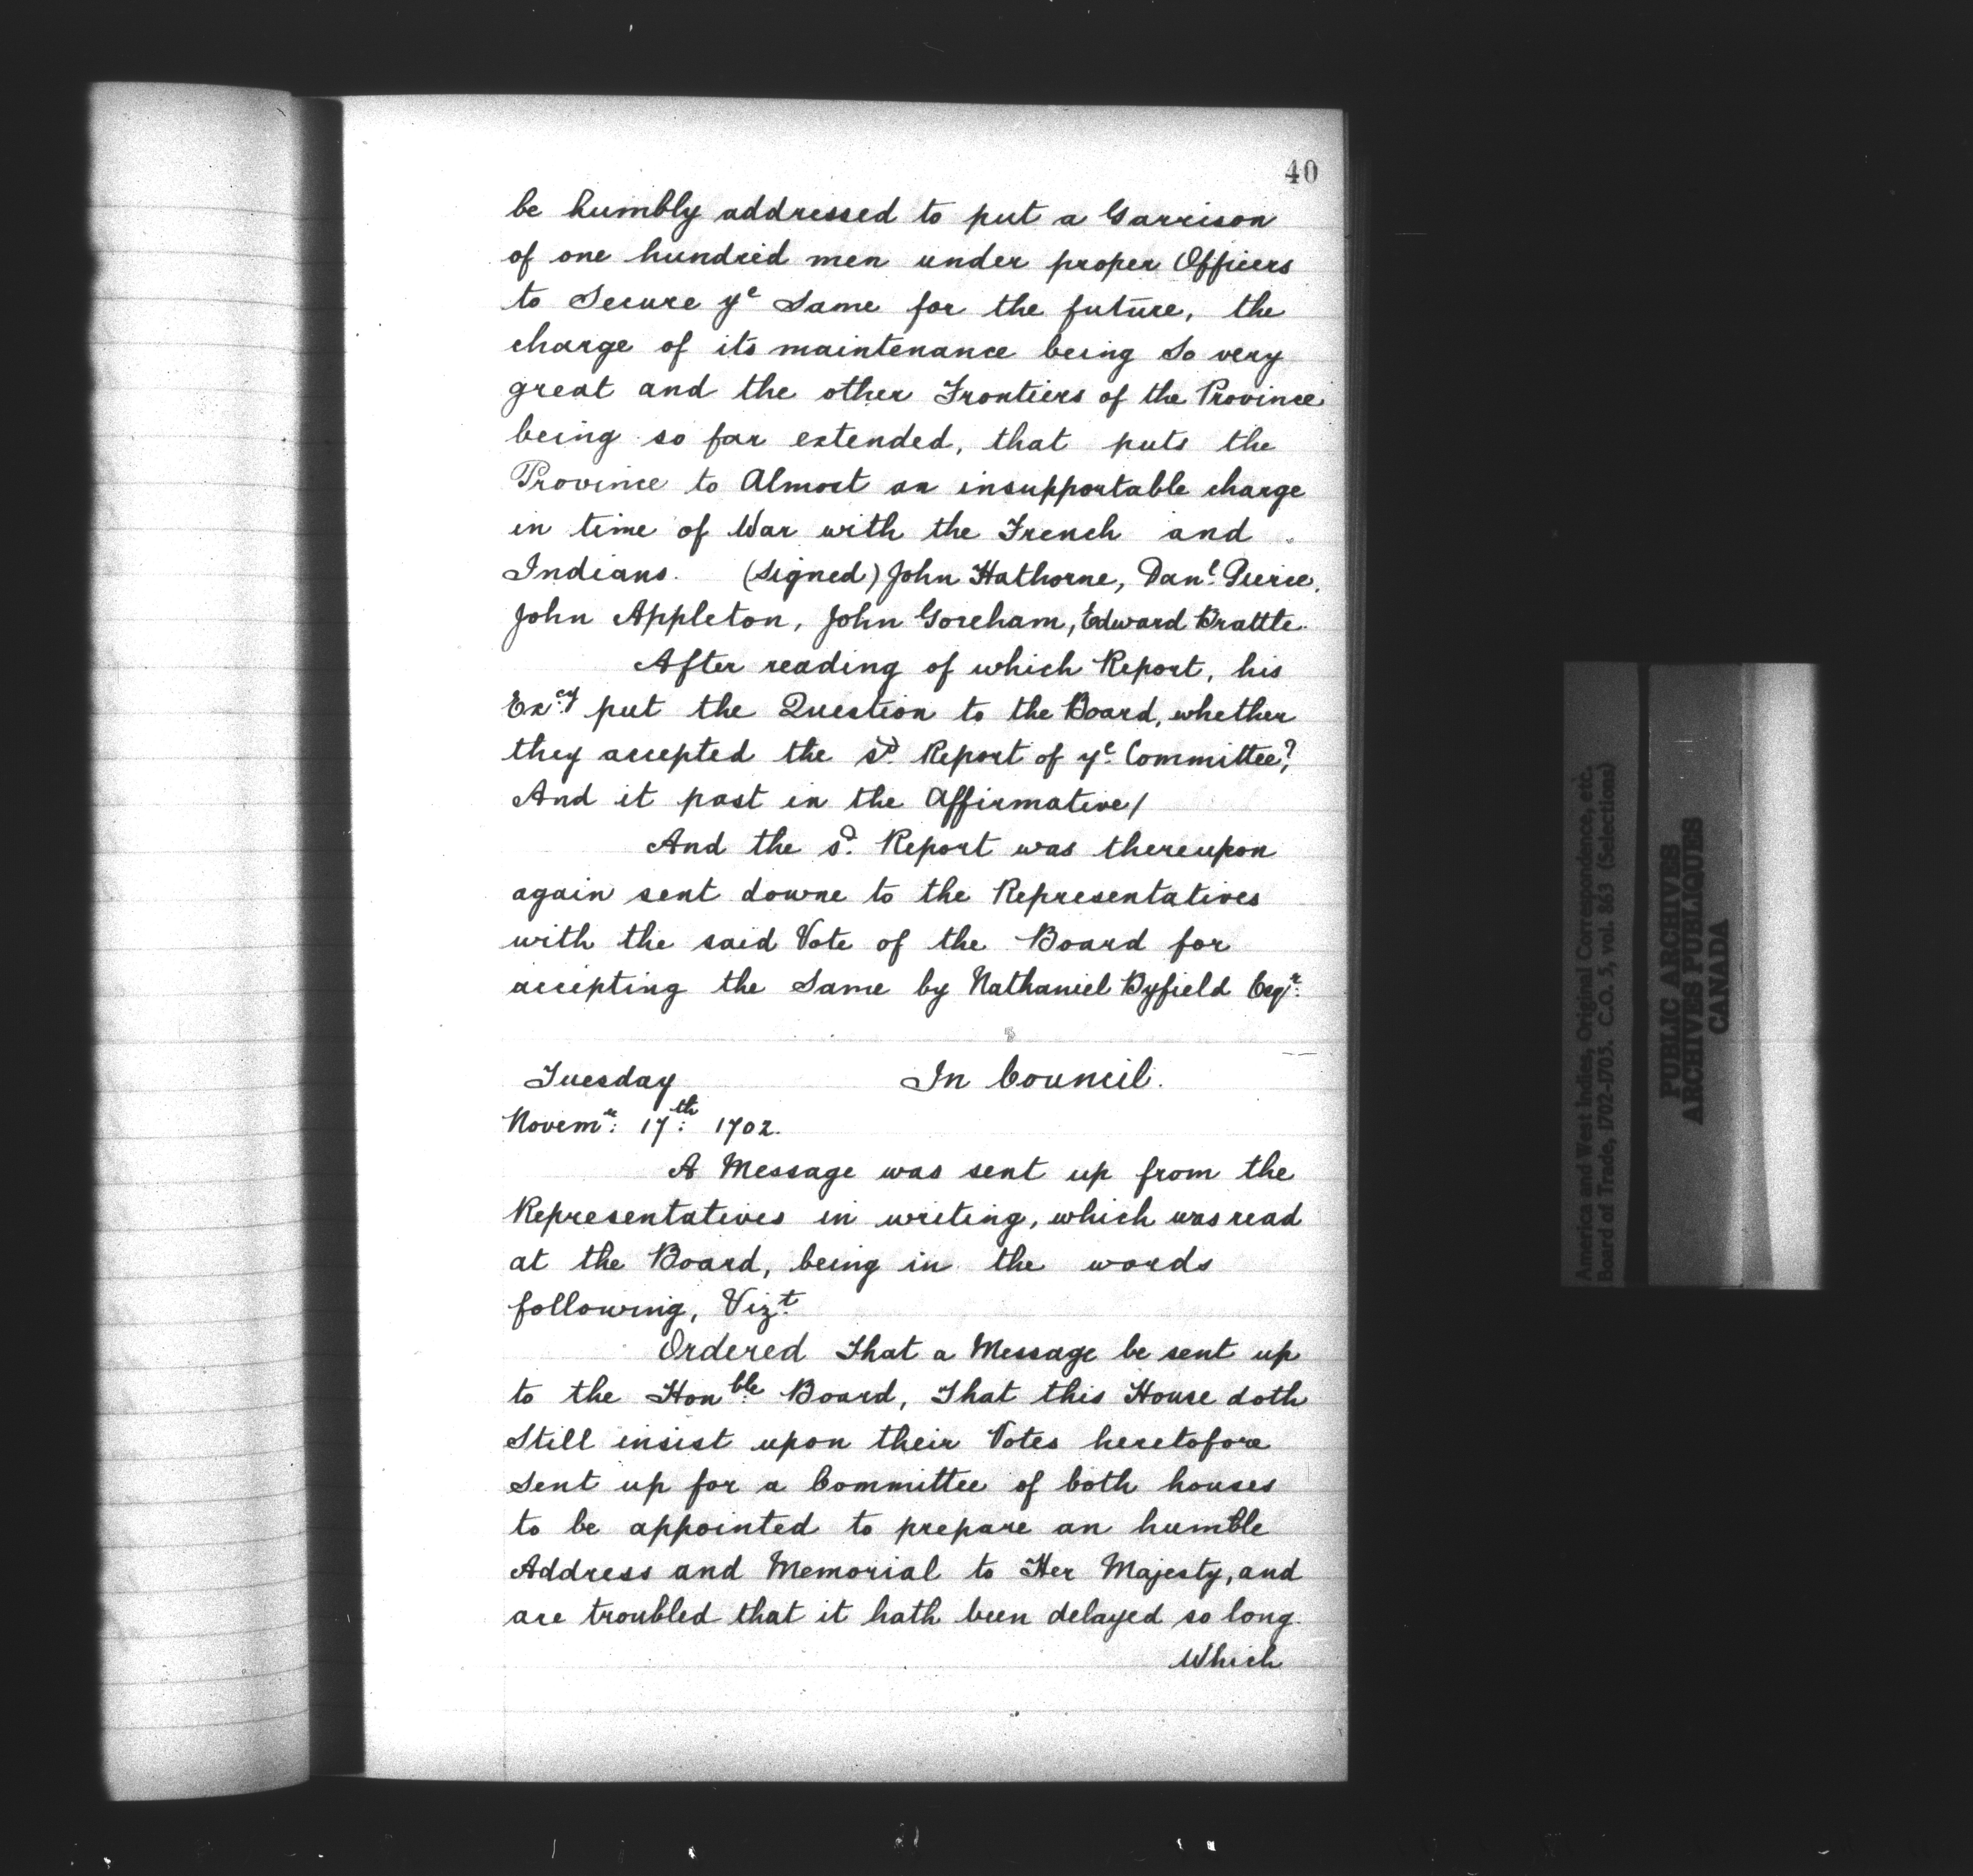 40
be humbly addressed to put a Garrison
of one hundred men under proper Officers
to Secure yᵉ Same for the future, the
charge of its maintenance being So very
great and the other Frontiers of the Province
being so far extended, that puts the
Province to Almost an insupportable charge
in time of War with the French and
Indians. (Signed) John Hathorne, Danˡ. Pierce,
John Appleton, John Goreham, Edward Brattle.
After reading of which Report, his
Exᶜʸ put the Question to the Board, whether
they accepted the sᵈ. Report of yᵉ. Committee?,
And it past in the Affirmative/
And the sᵈ. Report was thereupon
again sent downe to the Representatives
with the said Vote of the Board for
accepting the Same by Nathaniel Byfield Esqʳ.
Tuesday In Council.
Novemʳ: 17ᵗʰ: 1702.
A Message was sent up from the
Representatives in writing, which was read
at the Board, being in the words
following, Vizᵗ.
Ordered That a Message be sent up
to the Honᵇˡᵉ Board, That this House doth
Still insist upon their Votes heretofore
Sent up for a Committee of both houses
to be appointed to prepare an humble
Address and Memorial to Her Majesty, and
are troubled that it hath been delayed so long.
Which
America and West Indies, Original Correspondence, etc.
Board of Trade, 1702-1703. C.O. 5, vol. 863 (Selections)
PUBLIC ARCHIVES
ARCHIVES PUBLIQUES
CANADA